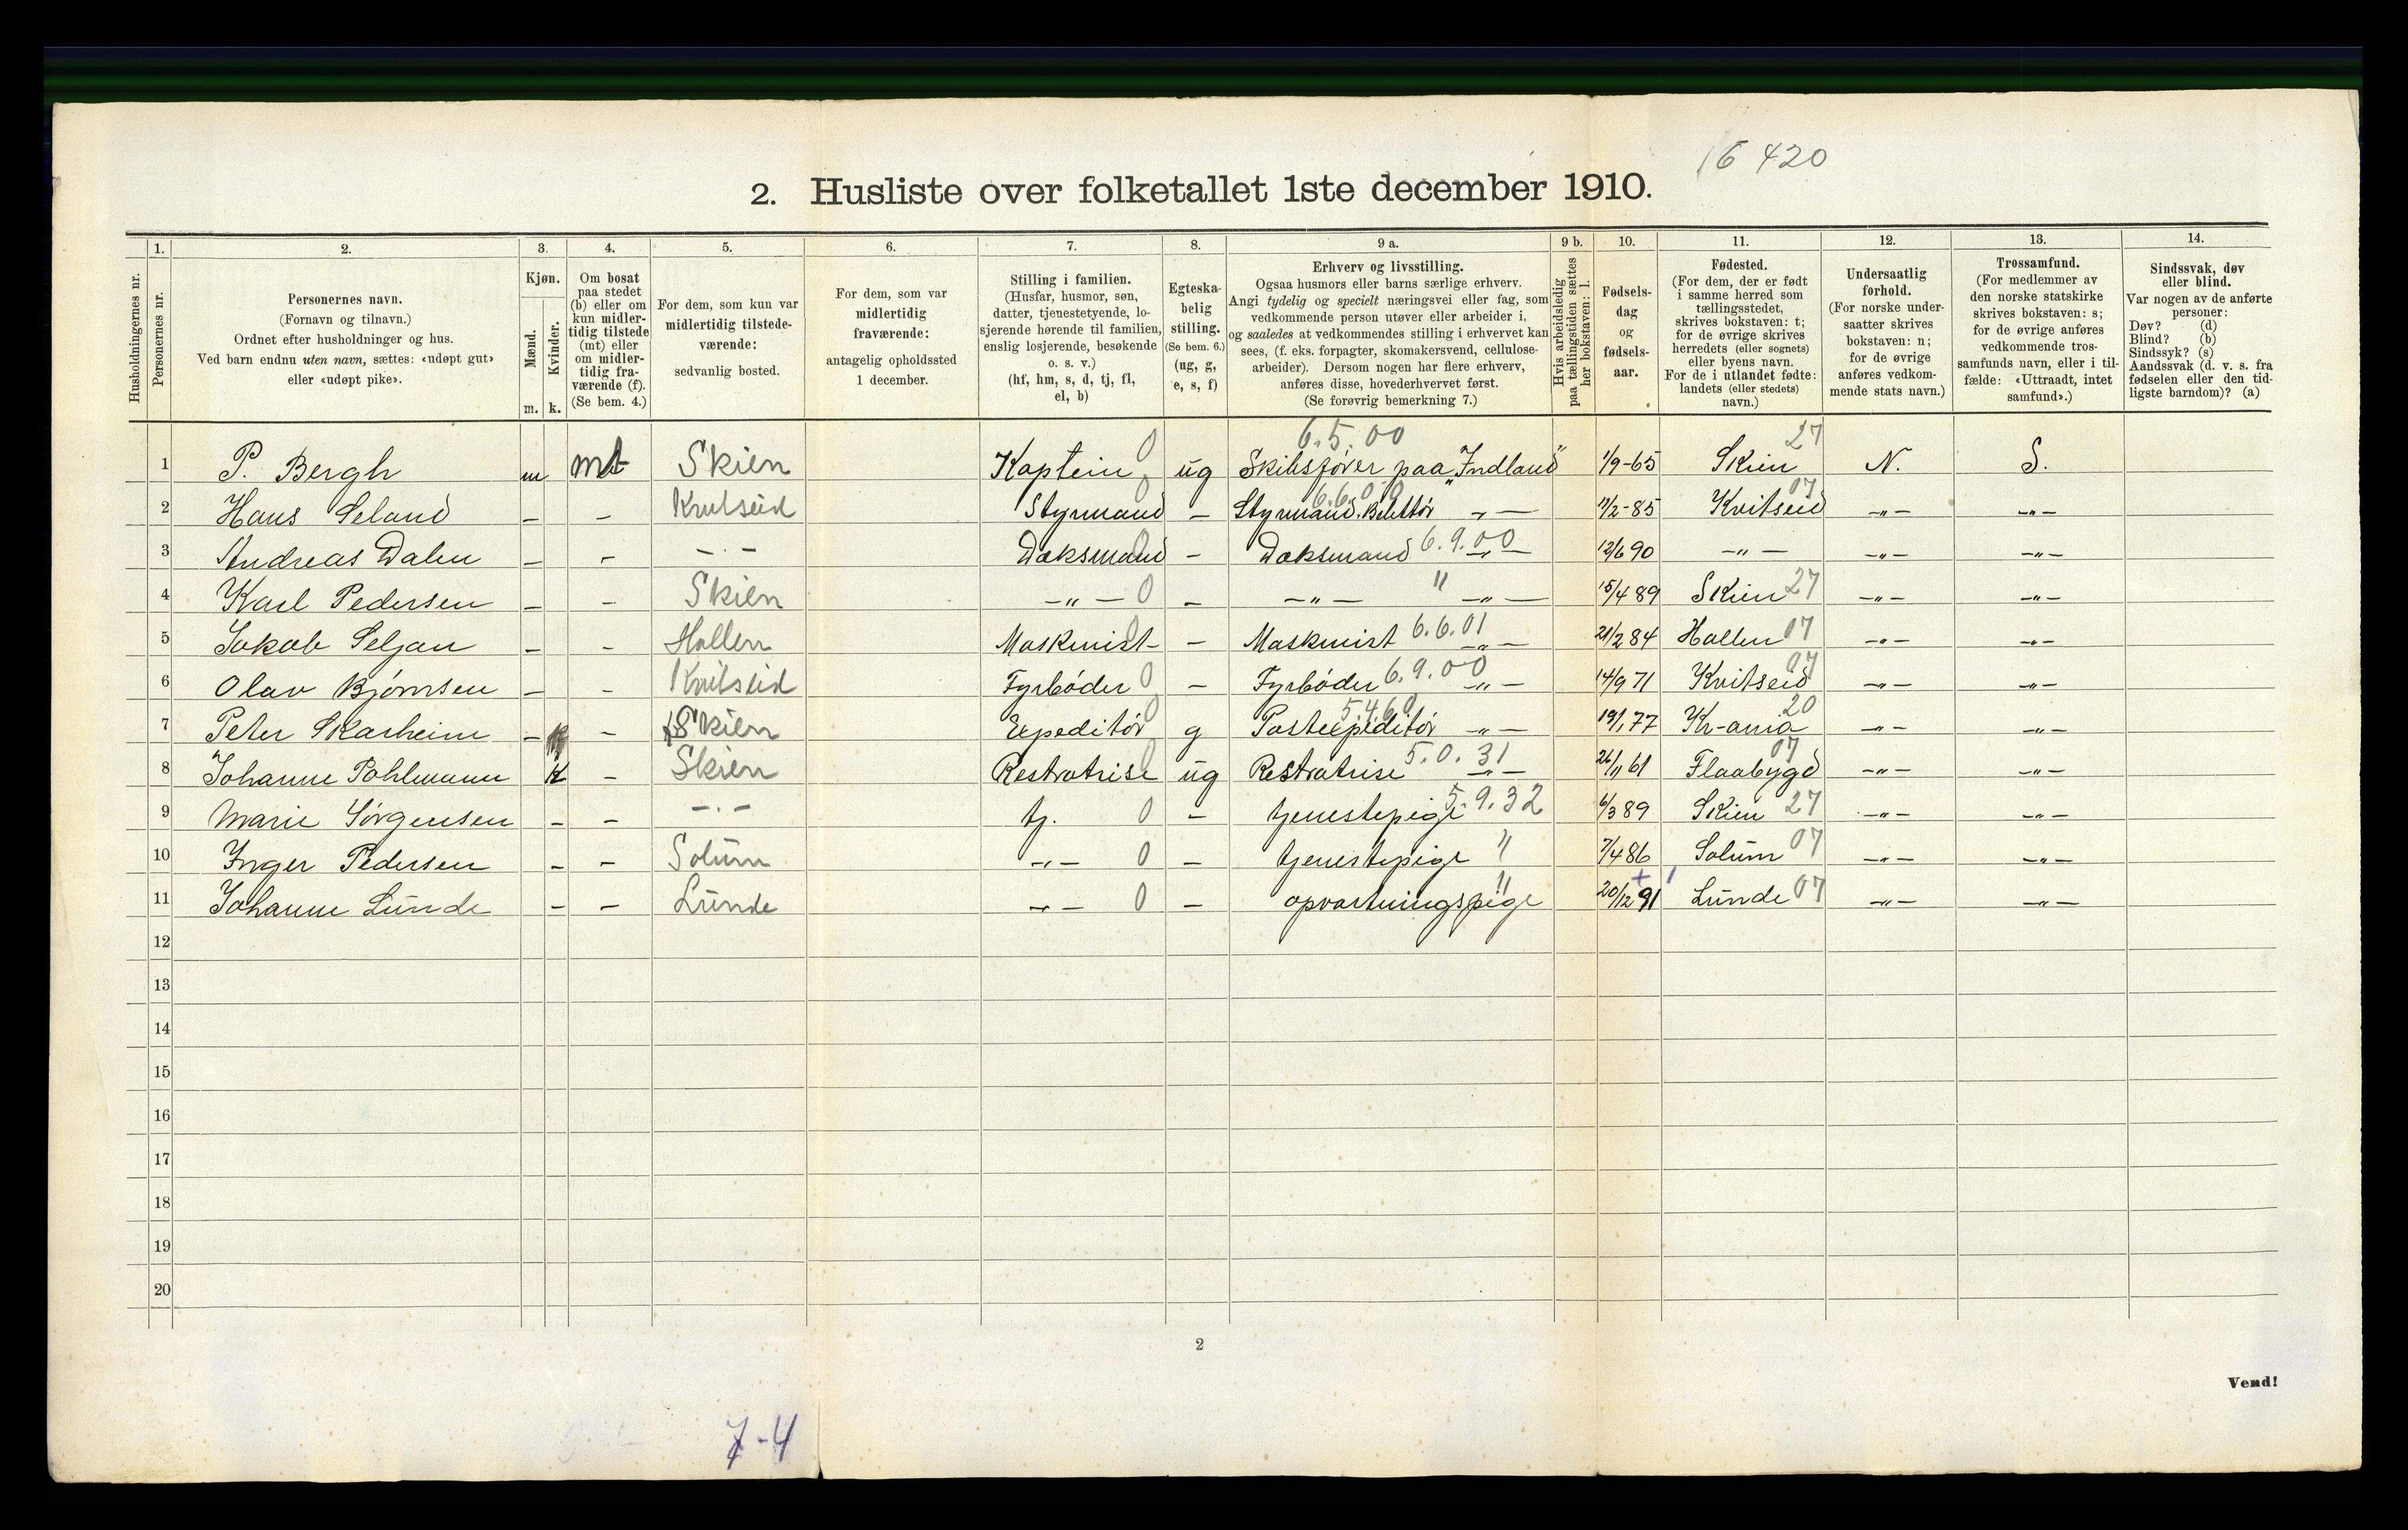 16 420
2. Husliste over folketallet 1ste december 1910.
Husholdningernes nr.
1.
Personernes nr.
2.
Personernes navn.
(Fornavn og tilnavn.)
Ordnet efter husholdninger og hus.
Ved barn endnu uten navn, sættes: «udøpt gut»
eller «udøpt pike».
3.
Kjøn.
Mænd.
Kvinder.
m. k.
4.
Om bosat
paa stedet
(b) eller om
kun midler-
tidig tilstede
(mt) eller
om midler-
tidig fra-
værende (f).
(Se bem. 4.)
5.
For dem, som kun var
midlertidig tilstede-
værende:
sedvanlig bosted.
6.
For dem, som var
midlertidig
fraværende:
antagelig opholdssted
1 december.
7.
Stilling i familien.
(Husfar, husmor, søn,
datter, tjenestetyende, lo-
sjerende hørende til familien,
enslig losjerende, besøkende
o. s. v.)
(hf, hm, s, d, tj, fl,
el, b)
8.
Egteska-
belig
stilling.
(Se bem. 6.)
(ug, g,
e, s, f)
9 a.
Erhverv og livsstilling.
Ogsaa husmors eller barns særlige erhverv.
Angi tydelig og specielt næringsvei eller fag, som
vedkommende person utøver eller arbeider i,
og saaledes at vedkommendes stilling i erhvervet kan
sees, (f. eks. forpagter, skomakersvend, cellulose-
arbeider). Dersom nogen har flere erhverv,
anføres disse, hovederhvervet først.
(Se forøvrig bemerkning 7.)
9 b.
Hvis arbeidsledig
paa tællingstiden sættes
her bokstaven: l.
10.
Fødsels-
dag
og
fødsels-
aar.
11.
Fødested.
(For dem, der er født
i samme herred som
tællingsstedet,
skrives bokstaven: t;
for de øvrige skrives
herredets (eller sognets)
eller byens navn.
For de i utlandet fødte:
landets (eller stedets)
navn.)
12.
Undersaatlig
forhold.
(For norske under-
saatter skrives
bokstaven: n;
for de øvrige
anføres vedkom-
mende stats navn.)
13.
Trossamfund.
(For medlemmer av
den norske statskirke
skrives bokstaven: s;
for de øvrige anføres
vedkommende tros-
samfunds navn, eller i til-
fælde: «Uttraadt, intet
samfund».)
14.
Sindssvak, døv
eller blind.
Var nogen av de anførte
personer:
Døv? (d)
Blind? (b)
Sindssyk? (s)
Aandssvak (d. v. s. fra
fødselen eller den tid-
ligste barndom)? (a)
6.5.00 27
1 P. Bergh m mt Skien Kaptein 0 ug Skibsfører paa „Indland" 1/9-65 Skien N. S.
6.6.00 07
2 Hans Seland — — Kvitseid Styrmand — Styrmand. Billettør —„— 17/2-85 Kvitseid —„— —„—
3 Andreas Dalen — — —„— Dæksmand 0 — Dæksmand 6.9.00 —„— 12/6 90 —„— —„— —„—
4 Karl Pedersen — — Skien —„— 0 — —„— " —„— 15/4 89 Skien 27 —„— —„—
5 Jakob Seljan — — Hollen Maskinist 0 — Maskinist 6.6.01 —„— 21/2 84 Hollen 07 —„— —„—
6 Olav Bjørnsen — — Kvitseid Fyrbøder 0 — Fyrbøder 6.9.00 —„— 14/9 71 Kvitseid 07 —„— —„—
5.4.60 20
7 Peter Skarheim — — Skien Expeditør 0 g Postexpeditør —„— 19/1 77 Kr-ania —„— —„—
8 Johanne Pohlmann k — Skien Restratrise 0 ug Restratrise 5.0.31 —„— 26/11 61 Flaabygd 07 —„— —„—
9 Marie Jørgensen — — —„— tj. 0 — tjenestepige 5.9.32 6/3 89 Skien 27 —„— —„—
10 Inger Pedersen — — Solum —„— 0 — tjenestepige " 7/4 86 Solum 07 —„— —„—
11 Johanne Lunde — — Lunde —„— 0 — opvartningspige " 20/12 91 Lunde 07 —„— —„—
12
13
14
15
16
17
18
19
20
2
Vend!
7-4